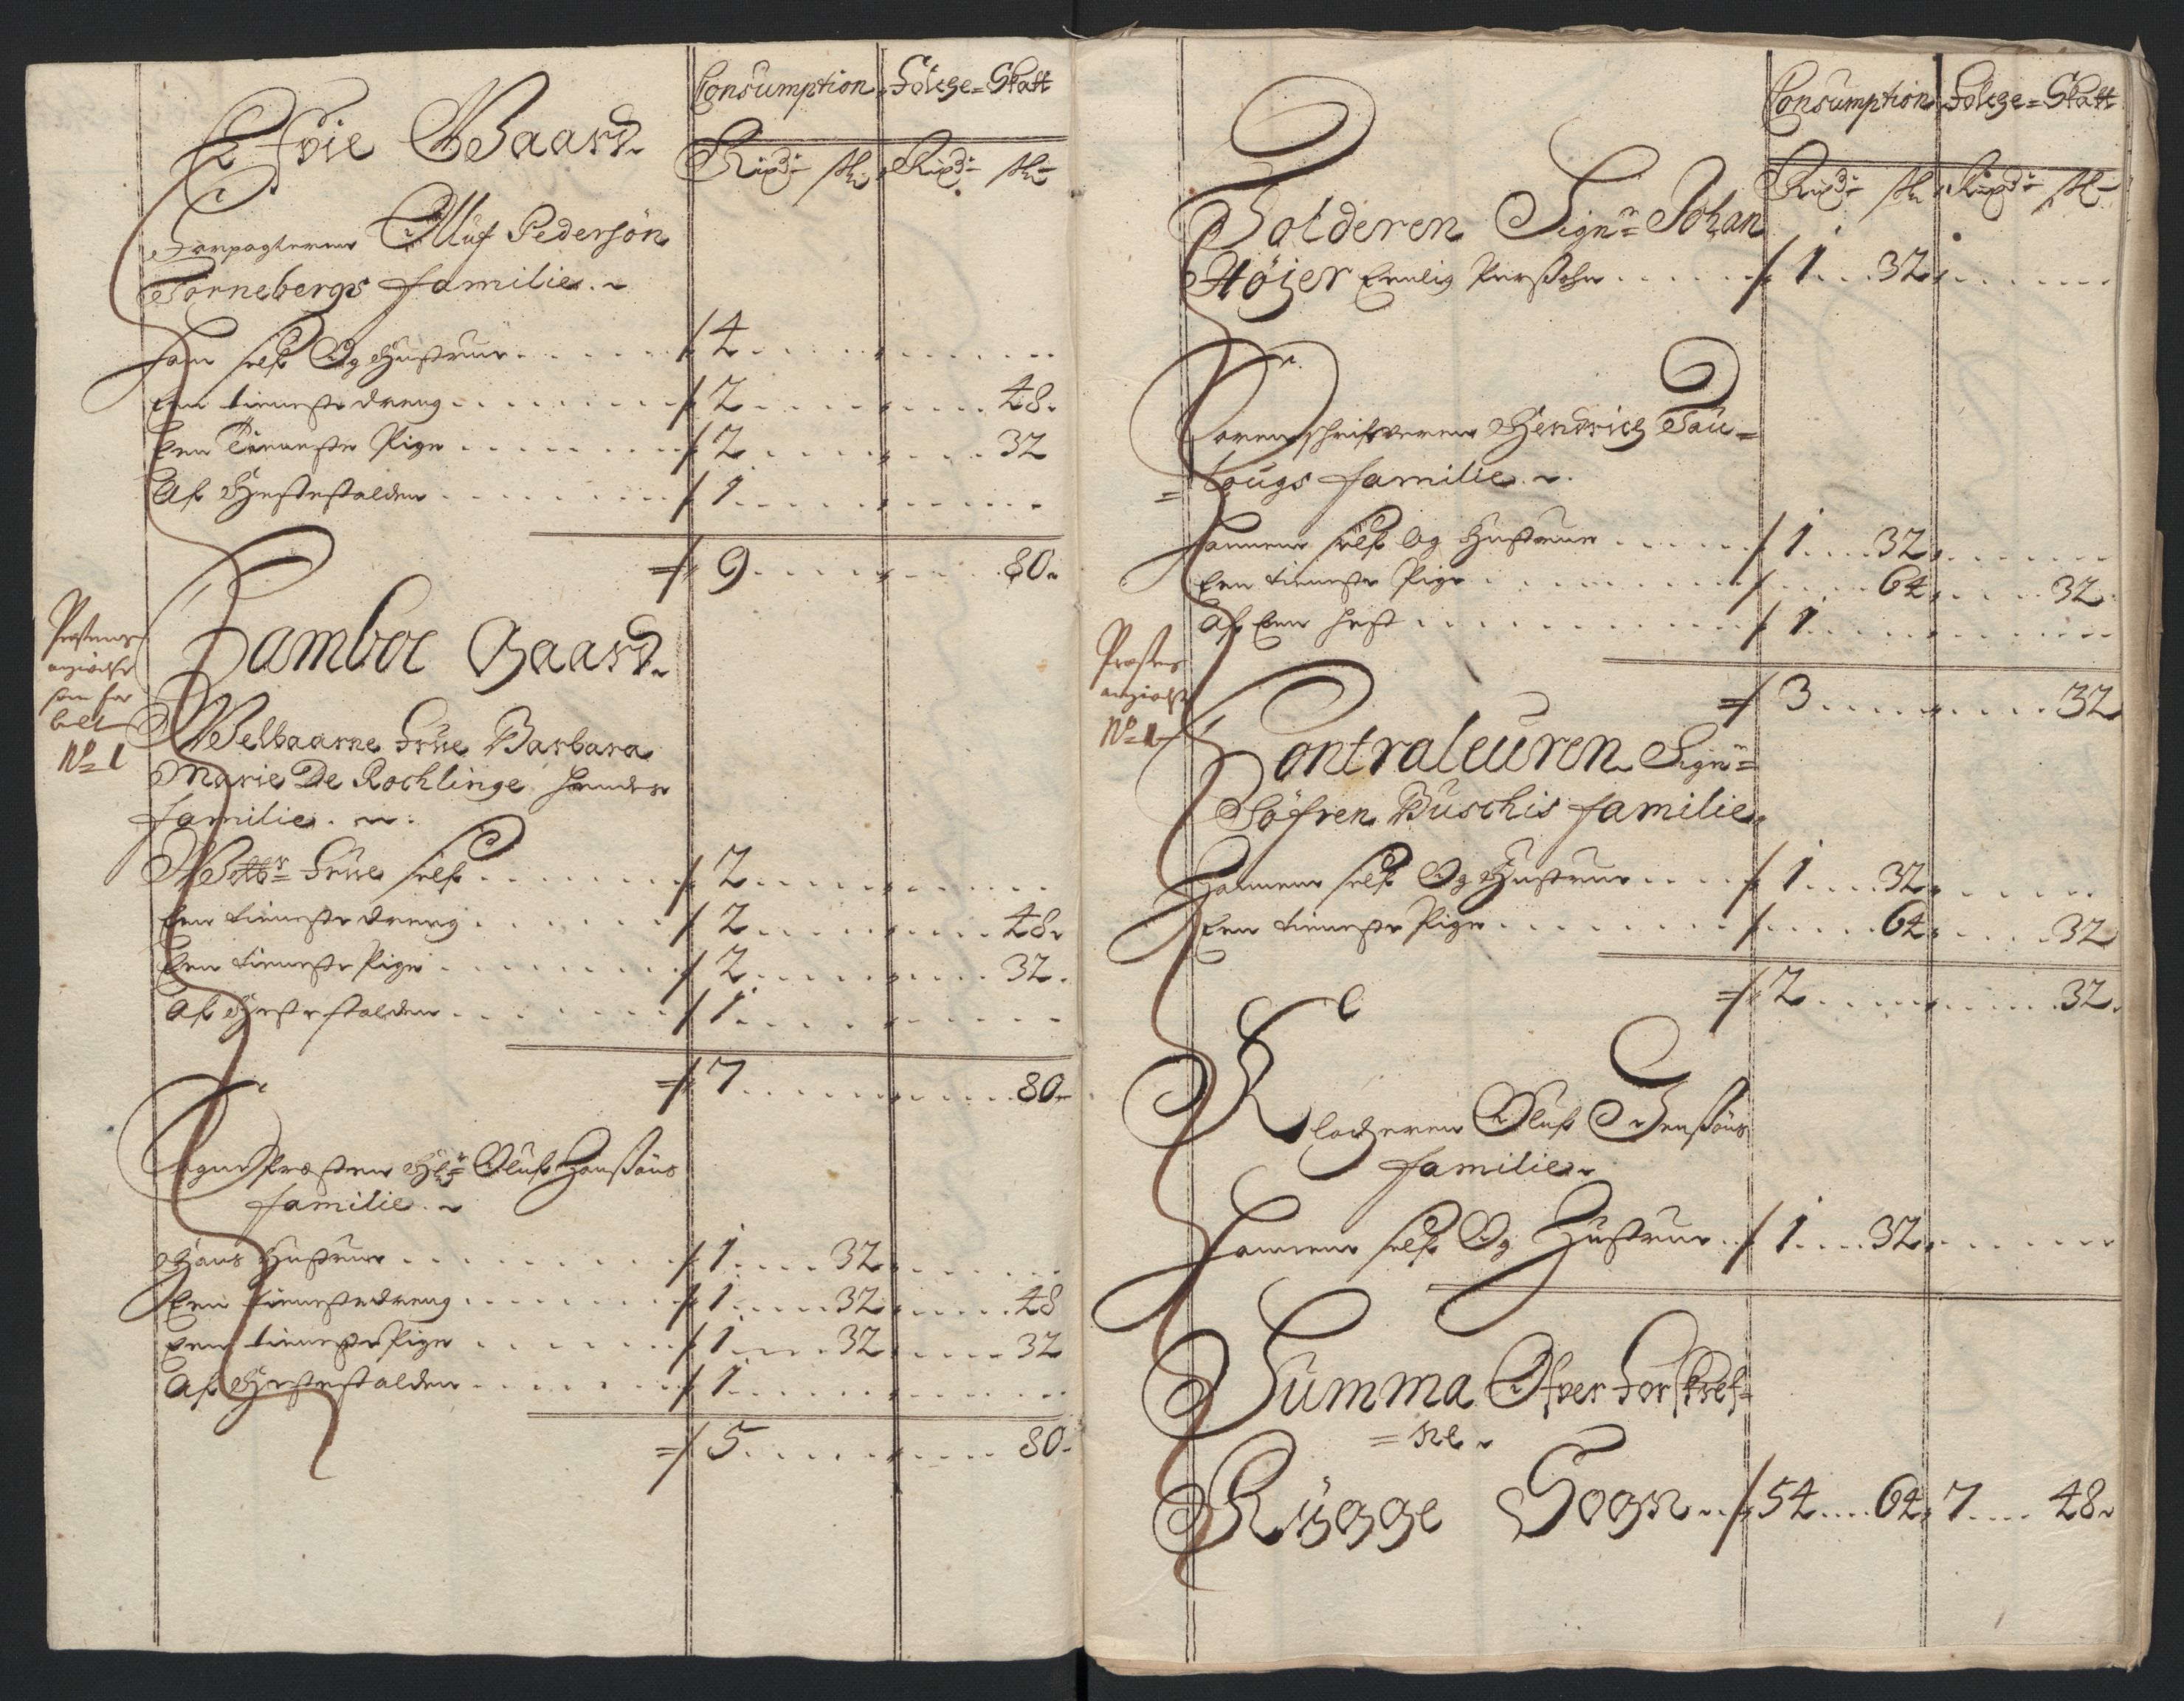 Consumption Folche-Skatt
Rixdr sk: Rixdr sk:
Evie Gaard
Forpagteren Olluf Pedersøn
Tornebergs familie.
Ham self Og Hustrue 4
Een tieneste dreng 2 48.
Een Tieneste Pige 2 32
Af Hestestalden 1
9 80.
Præstens
angivelse
som før
bilt
No 1
Camboe Gaard
Welbaarne Frue Barbara
Marie De Rochlinge hendes
familie.
Welbr Frue self 2
Een tieneste dreng 2 48.
Een tieneste Pige 2 32.
Af Hestestalden 1
7 80
SognePræsten Hr Oluf Hanssøns
familie.
Hans Hustrue 1 32
Een tienestedreng 1 32 48
Een tieneste Pige 1 32 32
Af Hestestalden 1
5 80
Consumption Folche-Skatt
Rixdr sk Rixdr sk
Tolderen Signr Johan
Høyer Eenlig Persohn 1 32
Sorenschrifveren Hendrich Tau-
=lougs familie.
Hannem self Og Hustrue 1 32
Een tieneste Pige 64 32
Af Een Hest 1
3 32
Præstens
angivelse
No 1
Contraleuren Signr
Søfren Buschis familie
Hannem self Og Hustrue 1 32
Een tieneste Pige 64 32
2 32.
Klocheren Oluf Jenssøns
familie
Hannem self Og Hustrue 1 32
Summa Ofver Forskref-
=ne
Rygge Sogn 54 64 7 48.